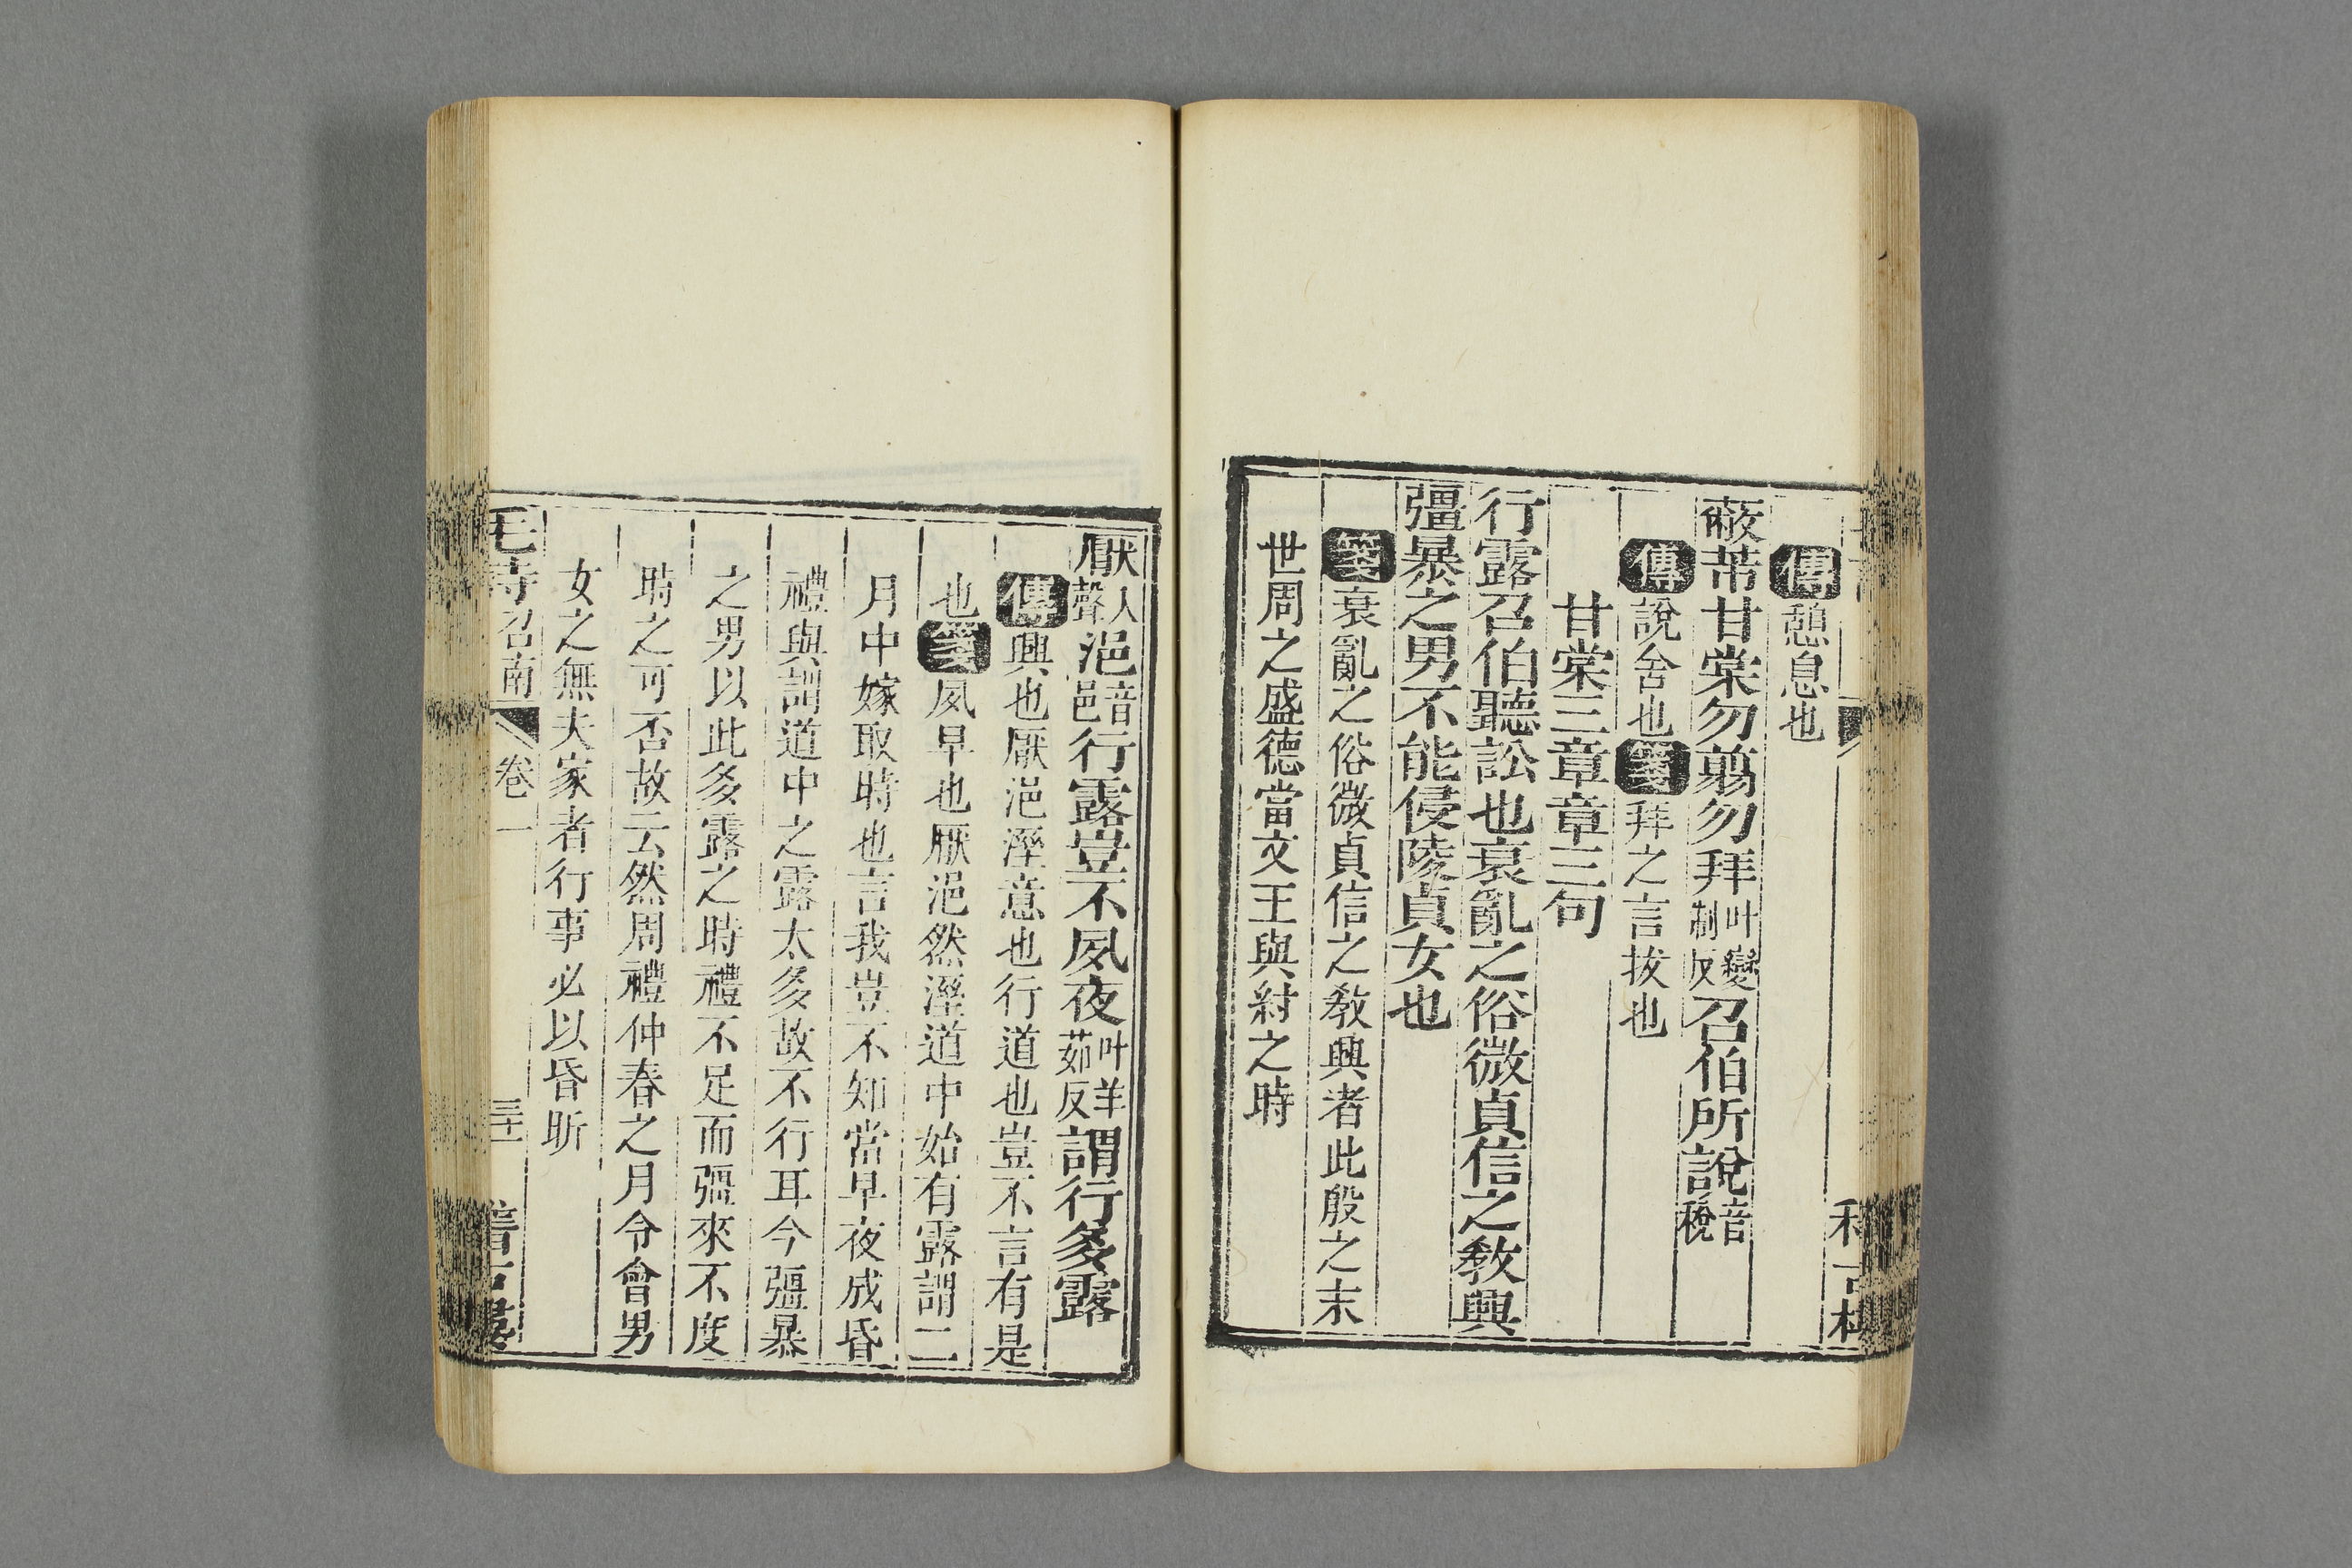 傳憩息也
蔽芾甘棠勿翦勿拜叶變制反召伯所說音稅
傳說舍也箋拜之言拔也
甘棠三章章三句
行露召伯聽訟也衰亂之俗微貞信之敎興
彊暴之男不能侵陵貞女也
箋衰亂之俗微貞信之敎興者此殷之末
世周之盛德當文王與紂之時
厭入聲浥音邑行露豈不夙夜叶羊茹反謂行多露
傳興也厭浥溼意也行道也豈不言有是
也箋夙早也厭浥然溼道中始有露謂二
月中嫁取時也言我豈不知當早夜成昏
禮與謂道中之露太多故不行耳今彊暴
之男以此多露之時禮不足而彊來不度
時之可否故云然周禮仲春之月令會男
女之無夫家者行事必以昏昕
毛詩召南 卷一 三十一